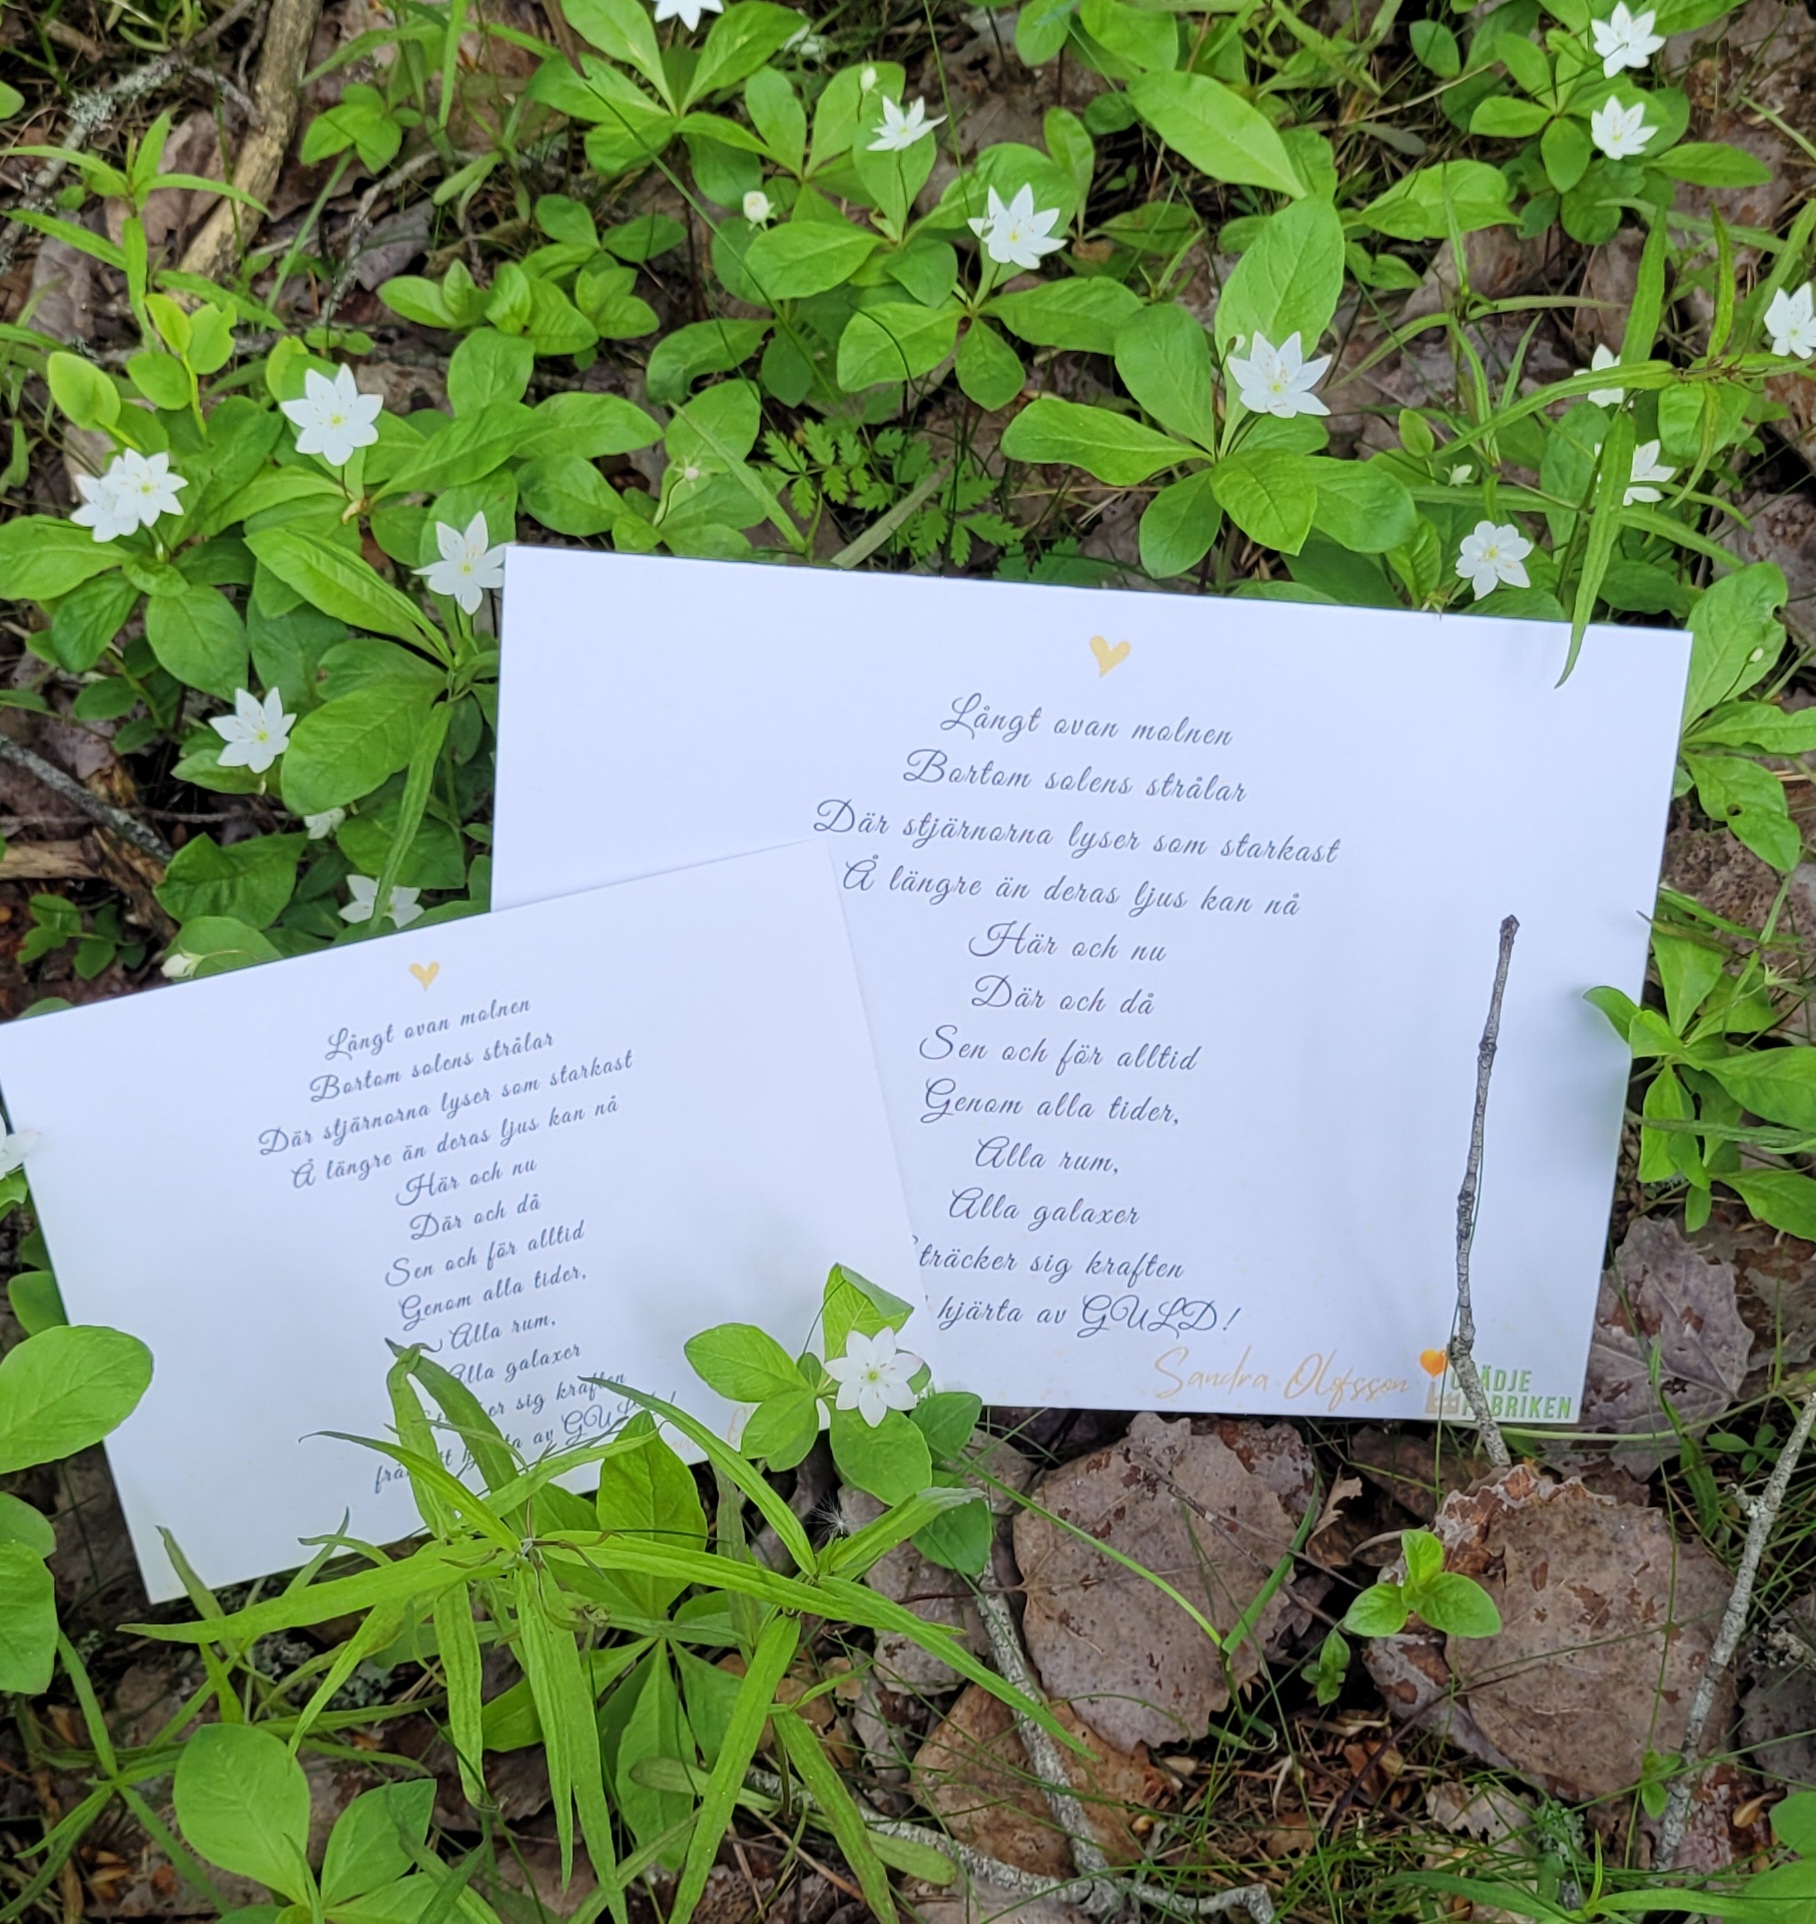 Långt ovan molnen
Bortom solens strålar
Där stjärnorna lyser som starkast
Å längre än deras ljus kan nå
Här och nu
Där och då
Sen och för alltid
Genom alla tider,
Alla rum,
Alla galaxer
Sträcker sig kraften
hjärta av GULD!
Sandra Olofsson
GLÄDJE
FABRIKEN
Långt ovan molnen
Bortom solens strålar
Där stjärnorna lyser som starkast
Å längre än deras ljus kan nå
Här och nu
Där och då
Sen och för alltid
Genom alla tider,
Alla rum,
Alla galaxer
sig kraften
från av GULD!